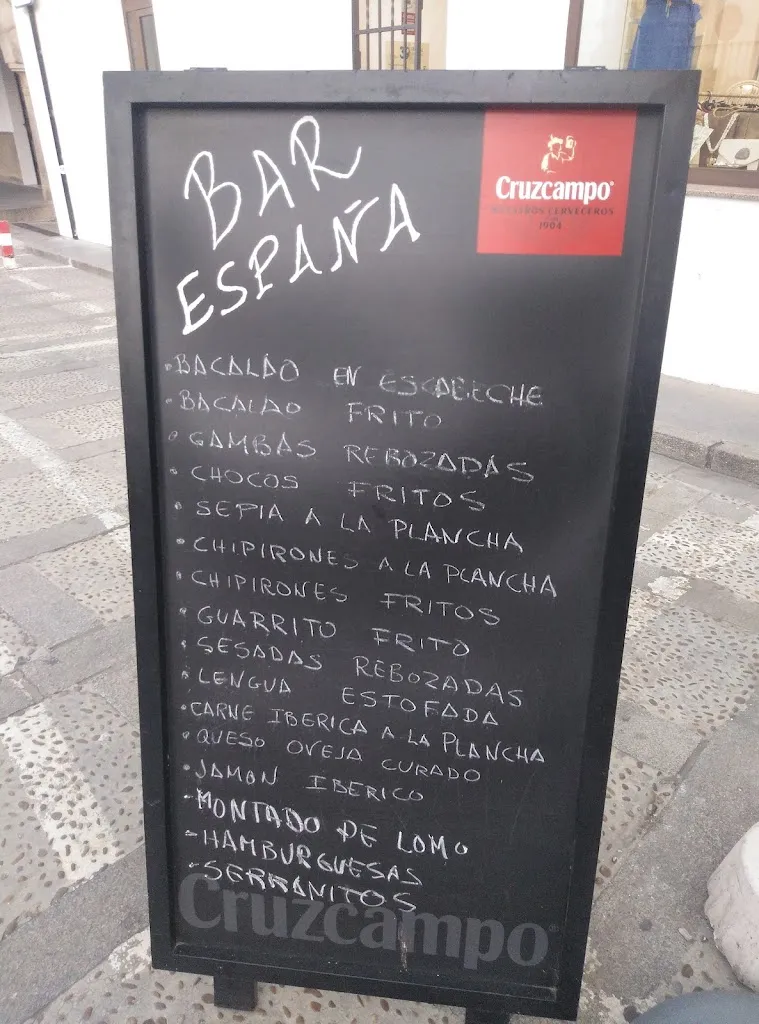 BAR
ESPAÑA
Cruzcampo
MAESTROS CERVECEROS
1904
•BACALAO EN ESCABECHE
•BACALAO FRITO
•GAMBAS REBOZADAS
•CHOCOS FRITOS
•SEPIA A LA PLANCHA
•CHIPIRONES A LA PLANCHA
•CHIPIRONES FRITOS
•GUARRITO FRITO
•SESADAS REBOZADAS
•LENGUA ESTOFADA
•CARNE IBERICA A LA PLANCHA
•QUESO OVEJA CURADO
•JAMON IBERICO
-MONTADO DE LOMO
-HAMBURGUESAS
-SERRANITOS
Cruzcampo